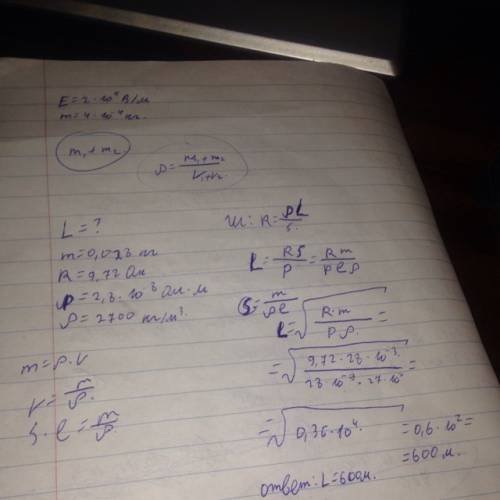 E = 2·10⁴ В/м
m = 4·10⁻⁴ кг.
m₁ + m₂
ρ = (m₁ + m₂)/(V₁ + V₂)
L = ?
m = 0,023 кг
R = 9,72 Ом
ρ = 2,8·10⁻⁸ Ом·м
ρ = 2700 кг/м³
m = ρ·V
V = m/ρ.
S·l = m/ρ
R = ρL/S.
L = RS/ρ = Rm/ρlρ
S = m/ρl
L = √(R·m/ρρ.) =
= 0,6·10² =
= 600 м.
ответ: L = 600 м.